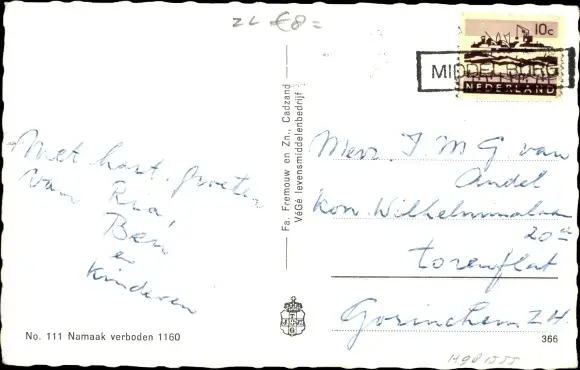 ZL €8=
10c
NEDERLAND
MIDDELBURG
Met hart. groeten
van Ria,
Ben
en
kinderen
Fa. Fremouw en Zn., Cadzand
VéGé levensmiddelenbedrijf
Mevr. J M G van
Andel
Kon. Wilhelminalaan
20
torenflat
Gorinchem Z.H.
No. 111 Namaak verboden 1160
366